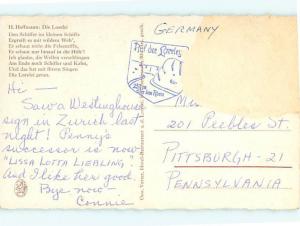 H. Hoffmann: Die Lorelei
Den Schiffer im kleinen Schiffe
Ergreift es mit wildem Weh',
Er schaut nicht die Felsenriffe,
Er schaut nur hinauf in die Höh'!
Ich glaube, die Wellen verschlingen
Am Ende noch Schiffer und Kahn,
Und das hat mit ihrem Singen
Die Lorelei getan.
GERMANY
Hi —
Saw a Westinghouse
sign in Zurich last
night! Penny's
successor is now
"LISSA LOTTA LIEBLING"
And I like her good.
Bye now —
Connie
201 Peebles St.
PITTSBURGH - 21
PENNSYLVANIA